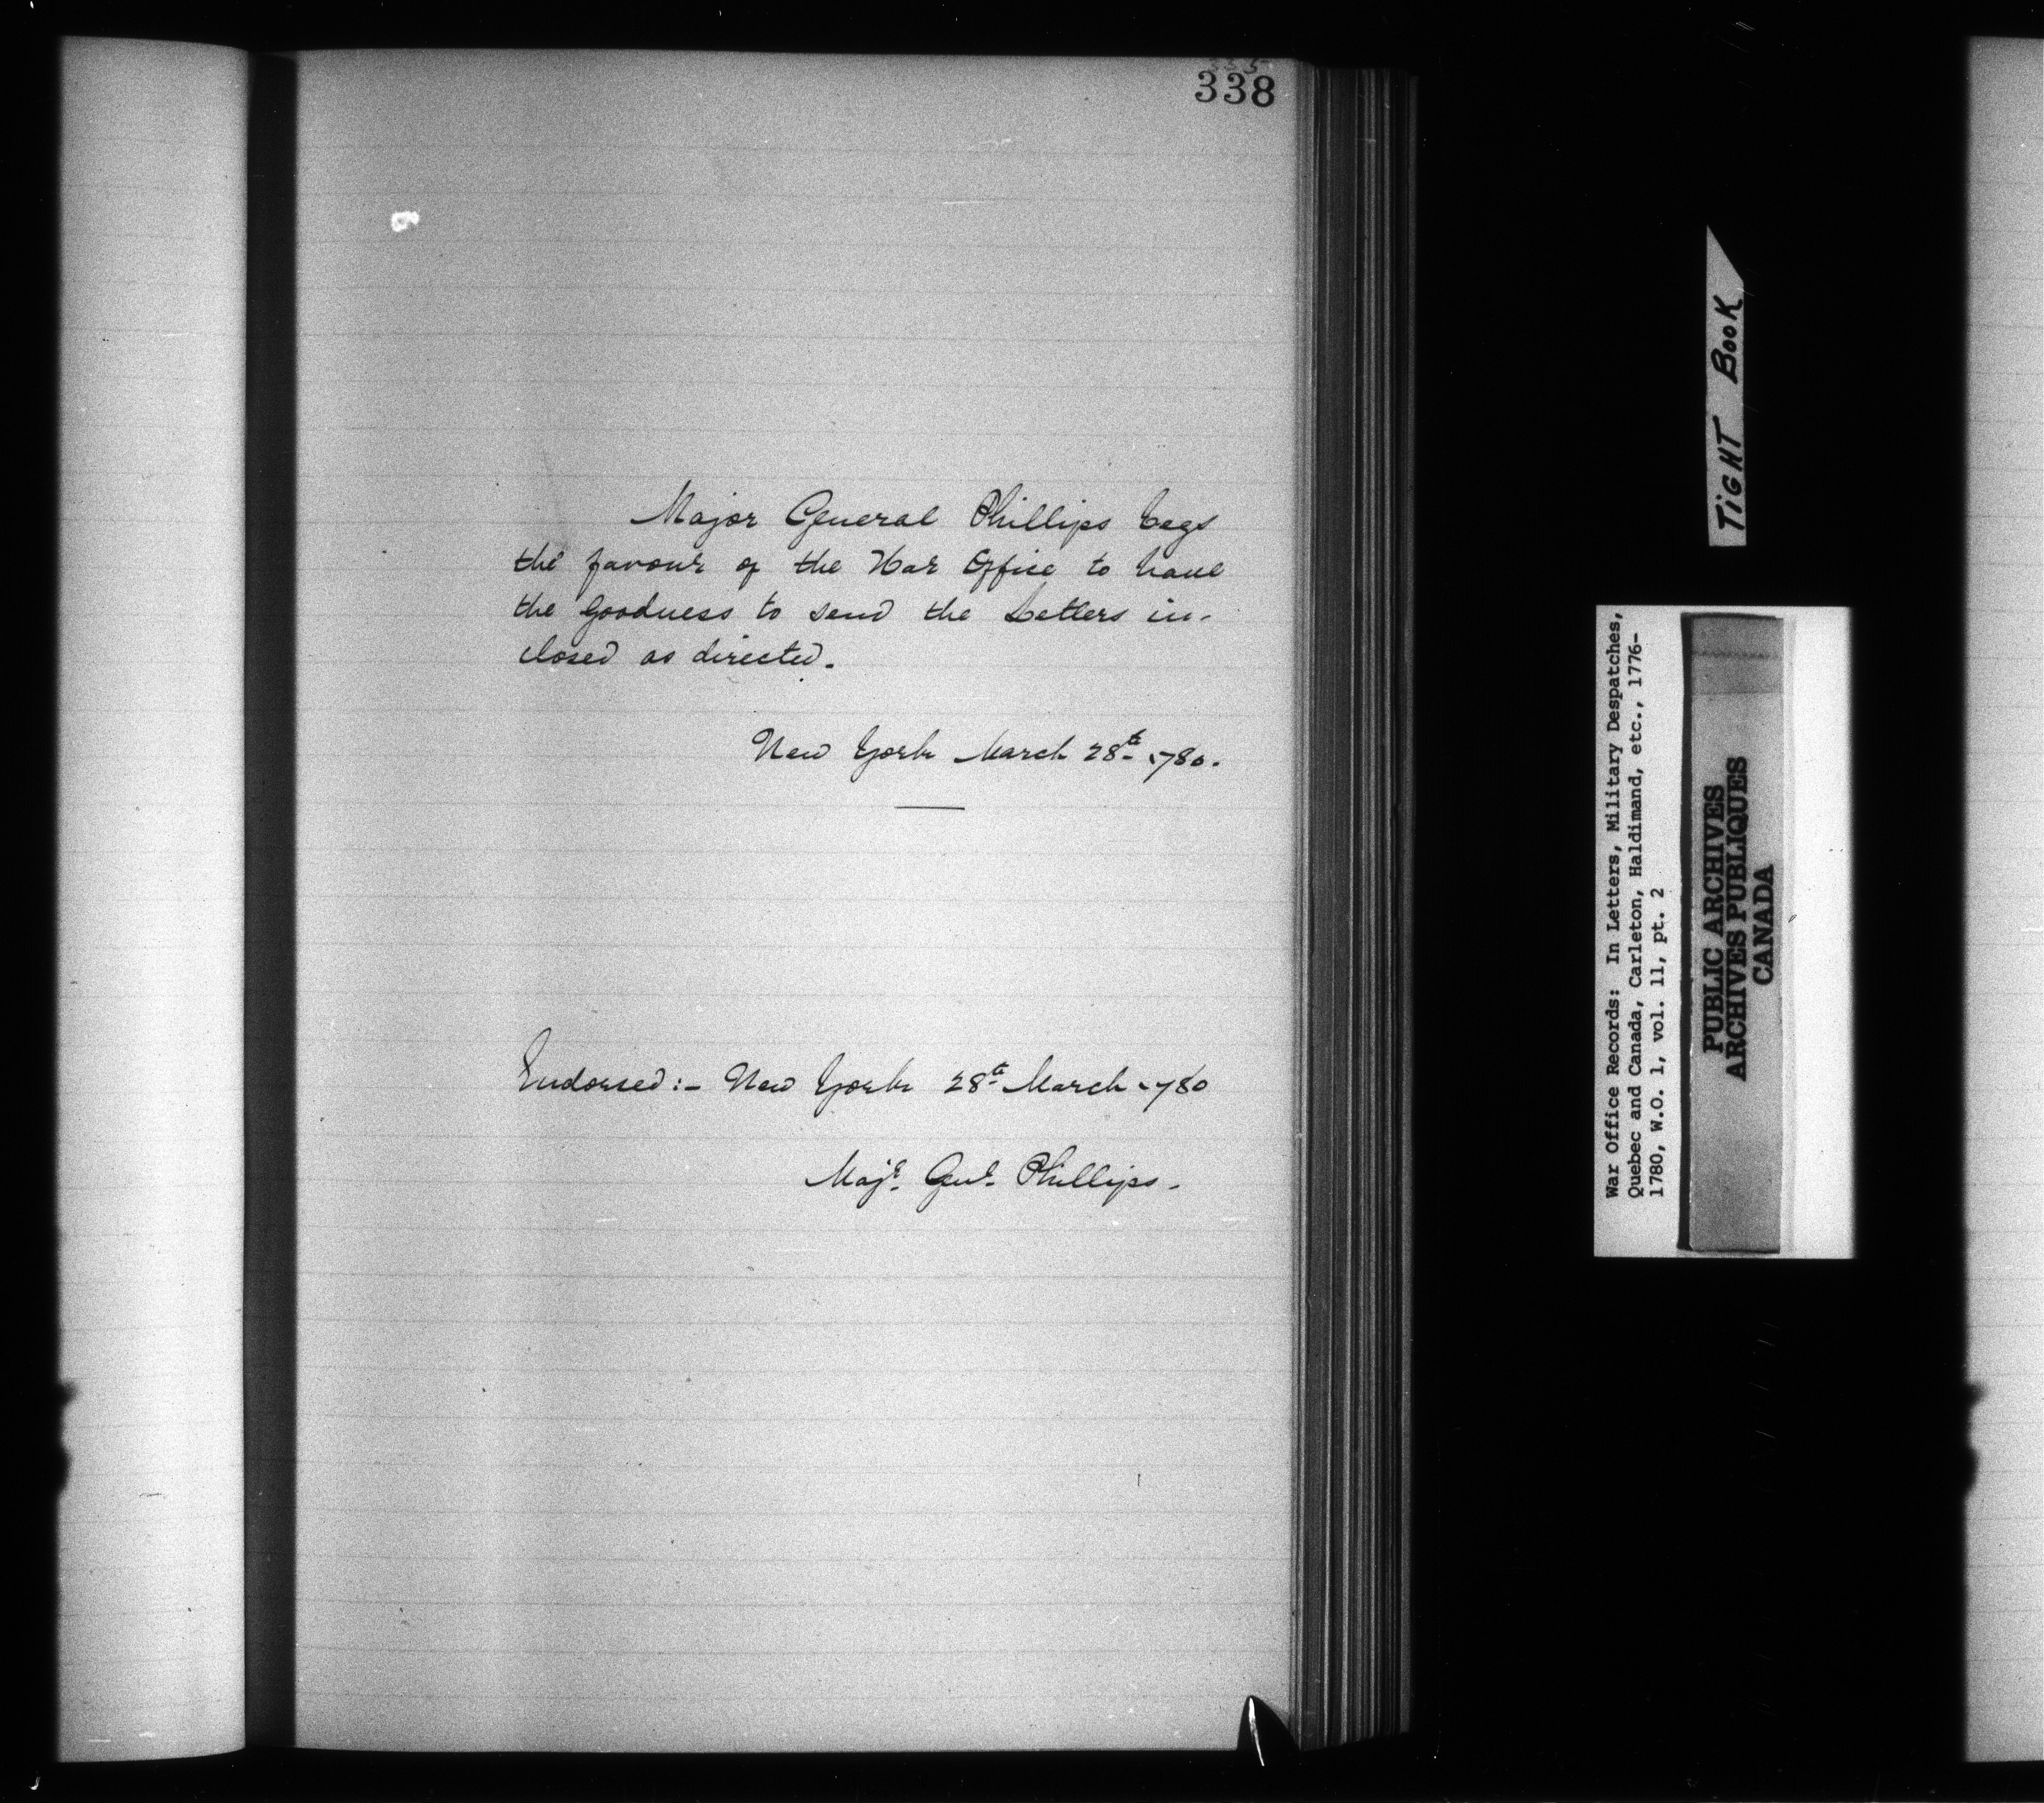 338
Major General Phillips begs
the favour of the War Office to have
the goodness to send the Letters in-
closed as directed.
New York March 28th 1780.
Endorsed :- New York 28th March 1780
Majr. Genl. Phillips.
TIGHT BOOK
War Office Records: In Letters, Military Despatches,
Quebec and Canada, Carleton, Haldimand, etc., 1776-
1780, W.O. 1, vol. 11, pt. 2
PUBLIC ARCHIVES
ARCHIVES PUBLIQUES
CANADA